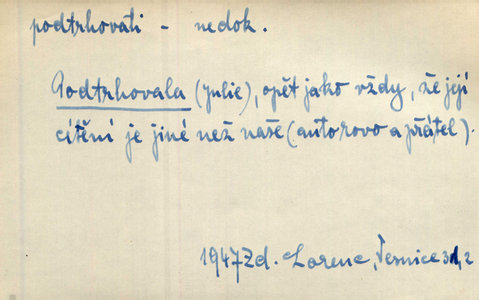 podtrhovati - nedok.
Podtrhovala (Julie), opět jako vždy, že její
cítění je jiné než naše (autorovo a přátel).
1947 Zd. Lorenc, Vesnice 31,2